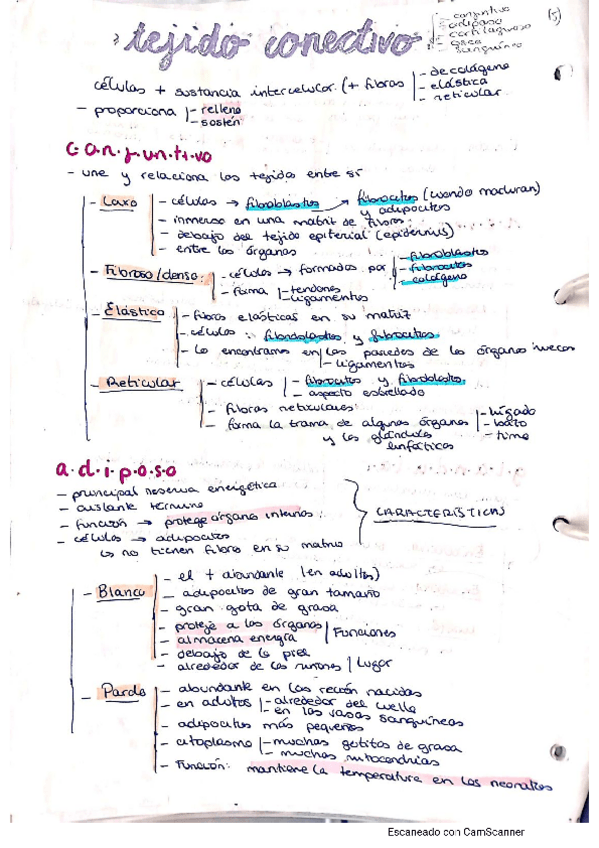 tejido conectivo
conjuntivo
adiposo
cartilaginoso
óseo
sanguíneo
(5)
células + sustancia intercelular (+ fibras
- de colágeno
- elástica
- reticular
- proporciona
- relleno
- sostén
c.o.n.j.u.n.t.i.v.o
- une y relaciona los tejidos entre sí
- Laxo
- células → fibroblastos → fibrocitos (cuando maduran)
y adipocitos
- inmerso en una matriz de fibras
- debajo del tejido epitelial (epidermis)
- entre los órganos
- Fibroso/denso:
- células → formadas por
- fibroblastos
- fibrocitos
- colágeno
- forma
- tendones
- ligamentos
- Elástico
- fibras elásticas en su matriz
- células: fibroblastos y fibrocitos.
- lo encontramos en las paredes de los órganos huecos
- ligamentos
- Reticular
- células
- fibrocitos y fibroblastos.
- aspecto estrellado
- fibras reticulares
- forma la trama de algunos órganos
y las glándulas
linfáticas
- hígado
- bazo
- timo
a.d.i.p.o.s.o
- principal reserva energética
- aislante térmico
- función → protege órganos internos.
- células → adipocitos
↳ no tienen fibras en su matriz
CARACTERÍSTICAS
- Blanco
- el + abundante (en adultos)
- adipocitos de gran tamaño
- gran gota de grasa
- protege a los órganos
- almacena energía
Funciones
- debajo de la piel
- alrededor de los riñones
Lugar
- Pardo
- abundante en los recién nacidos
- en adultos
- alrededor del cuello
- en los vasos sanguíneos
- adipocitos más pequeños
- citoplasma
- muchas gotitas de grasa
- muchas mitocondrias
- Función: mantiene la temperatura en los neonatos
Escaneado con CamScanner